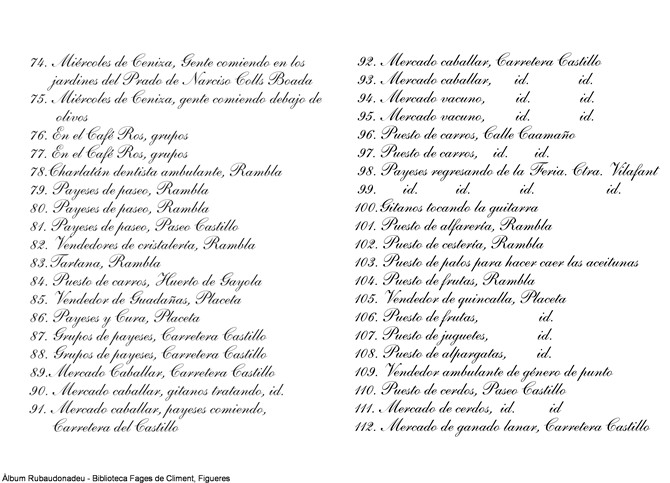 74. Miércoles de Ceniza, Gente comiendo en los
jardines del Prado de Narciso Colls Boada
75. Miércoles de Ceniza, gente comiendo debajo de
olivos
76. En el Café Ros, grupos
77. En el Café Ros, grupos
78. Charlatán dentista ambulante, Rambla
79. Payeses de paseo, Rambla
80. Payeses de paseo, Rambla
81. Payeses de paseo, Paseo Castillo
82. Vendedores de cristalería, Rambla
83. Tartana, Rambla
84. Puesto de carros, Huerto de Gayola
85. Vendedor de Guadañas, Placeta
86. Payeses y Cura, Placeta
87. Grupos de payeses, Carretera Castillo
88. Grupos de payeses, Carretera Castillo
89. Mercado Caballar, Carretera Castillo
90. Mercado caballar, gitanos tratando, id.
91. Mercado caballar, payeses comiendo,
Carretera del Castillo
92. Mercado caballar, Carretera Castillo
93. Mercado caballar, id. id.
94. Mercado vacuno, id. id.
95. Mercado vacuno, id. id.
96. Puesto de carros, Calle Caamaño
97. Puesto de carros, id. id.
98. Payeses regresando de la Feria. Ctra. Vilafant
99. id. id. id. id.
100. Gitanos tocando la guitarra
101. Puesto de alfarería, Rambla
102. Puesto de cestería, Rambla
103. Puesto de palos para hacer caer las aceitunas
104. Puesto de frutas, Rambla
105. Vendedor de quincalla, Placeta
106. Puesto de frutas, id.
107. Puesto de juguetes, id.
108. Puesto de alpargatas, id.
109. Vendedor ambulante de género de punto
110. Puesto de cerdos, Paseo Castillo
111. Mercado de cerdos, id. id
112. Mercado de ganado lanar, Carretera Castillo
Àlbum Rubaudonadeu - Biblioteca Fages de Climent, Figueres